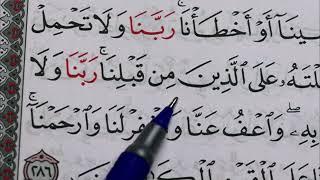 سِينَآ أَوۡ أَخۡطَأۡنَاۚ رَبَّنَا وَلَا تَحۡمِلۡ
لۡتَهُۥ عَلَى ٱلَّذِينَ مِن قَبۡلِنَاۚ رَبَّنَا وَلَا
بِهِۦۖ وَٱعۡفُ عَنَّا وَٱغۡفِرۡ لَنَا وَٱرۡحَمۡنَآۚ
٢٨٦